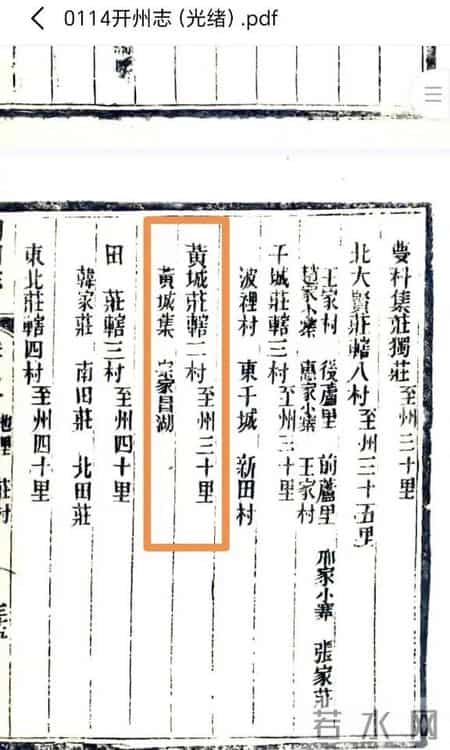 0114开州志 (光绪) .pdf
集莊獨莊至州三十里
北大賢莊轄八村至州三十五里
王家村 後蘆里 前蘆里 邢家小寨 張家莊
家小寨 惠家小寨 王家村
干城莊轄三村至州三十里
波裡村 東干城 新田村
黃城莊轄二村至州三十里
黃城集 家昌湖
田 莊轄三村至州四十里
韓家莊 南田莊 北田莊
東北莊轄四村至州四十里
地理 莊村
若水网